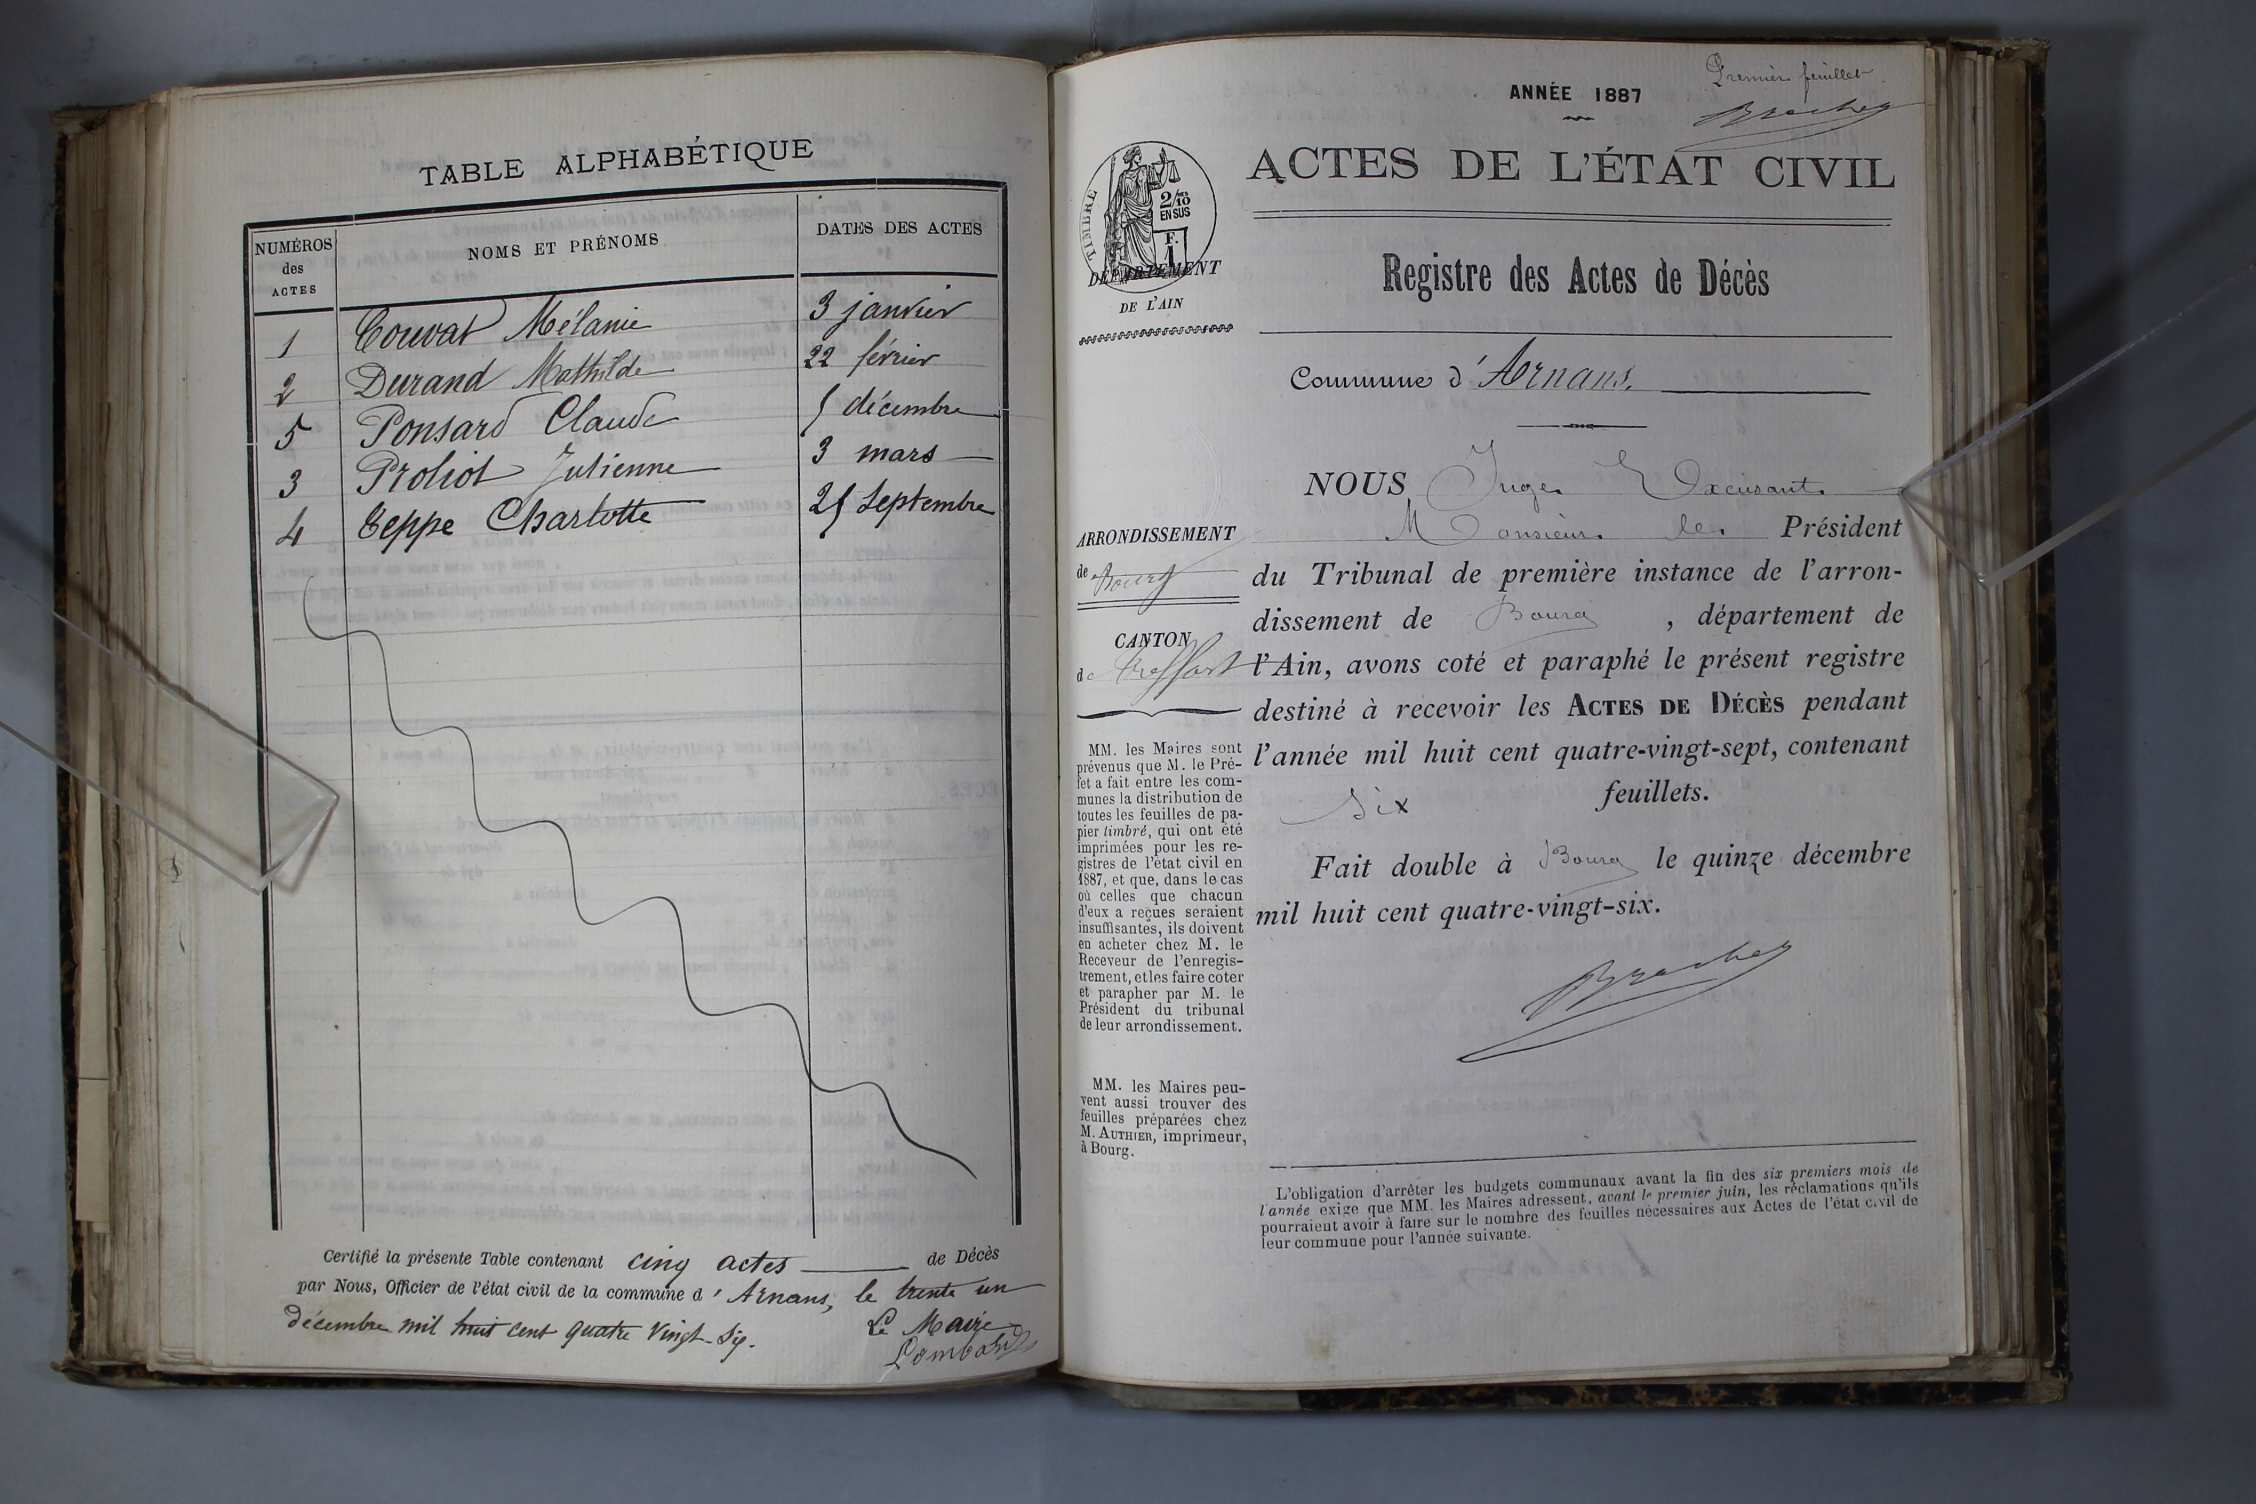 TABLE ALPHABÉTIQUE
NUMÉROS des ACTES
NOMS ET PRÉNOMS
DATES DES ACTES
1 Couvat Mélanie 3 janvier
2 Durand Mathilde 22 février
5 Ponsard Claude 5 décembre
3 Proliot Julienne 3 mars
4 Teppe Charlotte 25 Septembre
Certifié la présente Table contenant cinq actes de Décès
par Nous, Officier de l'état civil de la commune d'Arnans, le trente un
décembre mil huit cent quatre vingt-six.
Le Maire
Lombard
Premier feuillet
ANNÉE 1887
ACTES DE L'ÉTAT CIVIL
TIMBRE
2/10 EN SUS
F. 1
DÉPARTEMENT
DE L'AIN
Registre des Actes de Décès
Commune d'Arnans.
ARRONDISSEMENT
de Bourg
CANTON
de Treffort
MM. les Maires sont
prévenus que M. le Pré-
fet a fait entre les com-
munes la distribution de
toutes les feuilles de pa-
pier timbré, qui ont été
imprimées pour les re-
gistres de l'état civil en
1887, et que, dans le cas
où celles que chacun
d'eux a reçues seraient
insuffisantes, ils doivent
en acheter chez M. le
Receveur de l'enregis-
trement, et les faire coter
et parapher par M. le
Président du tribunal
de leur arrondissement.
MM. les Maires peu-
vent aussi trouver des
feuilles préparées chez
M. AUTHIER, imprimeur,
à Bourg.
NOUS, Juge Excusant
Monsieur le Président
du Tribunal de première instance de l'arron-
dissement de Bourg, département de
l'Ain, avons coté et paraphé le présent registre
destiné à recevoir les ACTES DE DÉCÈS pendant
l'année mil huit cent quatre-vingt-sept, contenant
Six feuillets.
Fait double à Bourg le quinze décembre
mil huit cent quatre-vingt-six.
L'obligation d'arrêter les budgets communaux avant la fin des six premiers mois de
l'année exige que MM. les Maires adressent, avant le premier juin, les réclamations qu'ils
pourraient avoir à faire sur le nombre des feuilles nécessaires aux Actes de l'état civil de
leur commune pour l'année suivante.